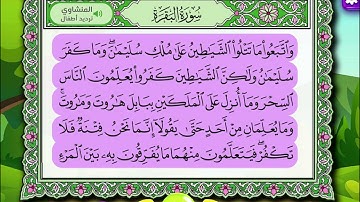 المنشاوي
ترديد أطفال
سُورَةُ البَقَرَةِ
وَاتَّبَعُوا مَا تَتْلُوا الشَّيَاطِينُ عَلَىٰ مُلْكِ سُلَيْمَانَ ۖ وَمَا كَفَرَ
سُلَيْمَانُ وَلَٰكِنَّ الشَّيَاطِينَ كَفَرُوا يُعَلِّمُونَ النَّاسَ
السِّحْرَ وَمَا أُنزِلَ عَلَى الْمَلَكَيْنِ بِبَابِلَ هَارُوتَ وَمَارُوتَ ۚ
وَمَا يُعَلِّمَانِ مِنْ أَحَدٍ حَتَّىٰ يَقُولَا إِنَّمَا نَحْنُ فِتْنَةٌ فَلَا
تَكْفُرْ ۖ فَيَتَعَلَّمُونَ مِنْهُمَا مَا يُفَرِّقُونَ بِهِ بَيْنَ الْمَرْءِ